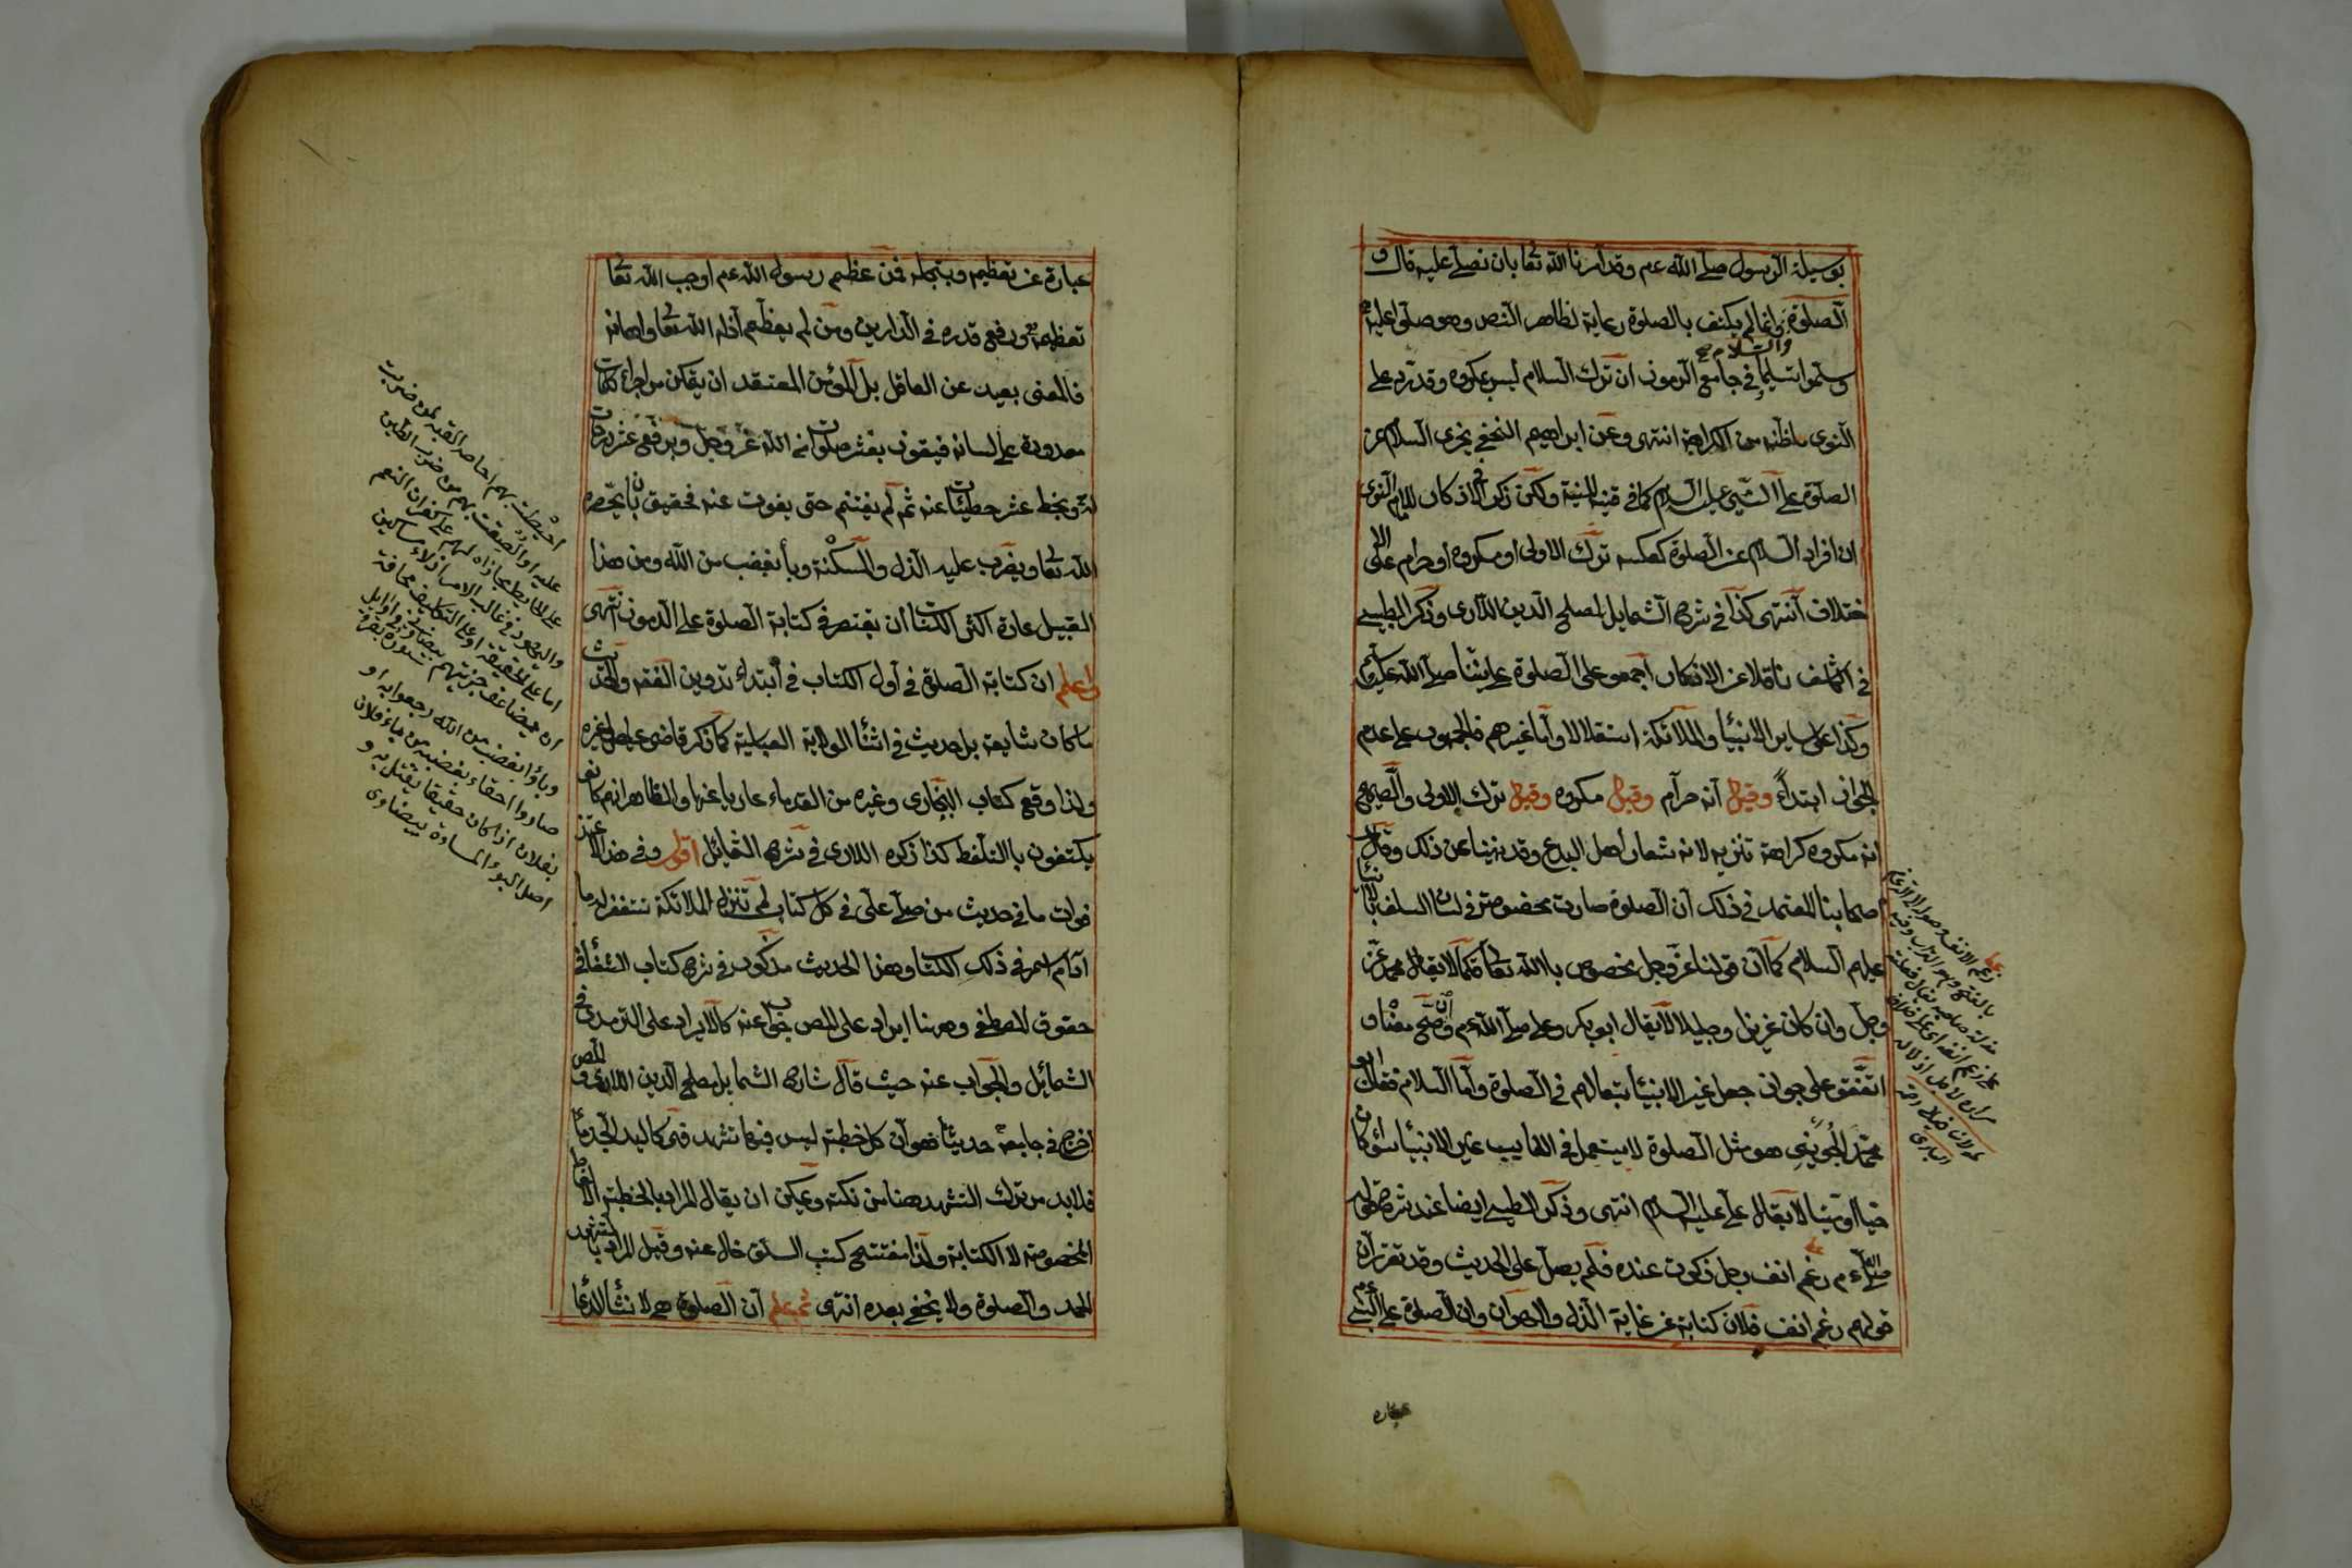 بوسيلة الرسول صلى الله عم وقد امرنا الله تعا بان نصلى عليه قال و
الصلوة وانما لم يكتف بالصلوة رعاية لظاهر النص وهو صلوا عليه
والسلام صح
وسلموا تسليما في جامع الرموز ان ترك السلام ليس بمكروه وقد رد على
النوى ما ظنه من الكراهة انتهى وعن ابراهيم النخعي يجزى السلام عن
الصلوة على النبي عليه السلام كما في قنية المنية ولكن ذكر في الاذكار للامام النوى
ان افراد السلام عن الصلوة كعكسه ترك الاولى او مكروه او حرام على الا
ختلاف انتهى كذا في شرح الشمايل لمصلح الدين اللارى وذكر الطيبى
في ناقلا عن الاذكار اجمعوا على الصلوة على نبينا صلى الله عليه وم
وكذا على ساير الانبئيا والملائكة استقلالا واما غيرهم فالجمهور على عدم
الجواز ابتداءً وقيل انه حرام وقيل مكروه وقيل ترك الاولى والصحيح
انه مكروه كراهة تنزيه لانه شعار اهل البدع وقد نهينا عن ذلك وقال
اصحابنا المعتمد في ذلك ان الصلوة صارت مخصوصة في لسان السلف بالا نبئيا
عليهم السلام كما ان قولنا عز وجل مخصوص باالله تعا فكما لا يقال محمد عز
وجل وان كان عزيزا وجليلا لا يقال ابو بكر وعلى صلى الله عم وان صح معناه و
اتفقو على جواز جعل غير الانبئيا تبعا لهم في الصلوة واما السلام فقال ابو
محمد الجوينى هو مثل الصلوة لا يستعمل في الغايب غير الانبئيا سؤ كان
حيا او ميتا لا يقال على عليه السلام انتهى وذكر الطيبى ايضا عند شرح قوله
صلى الله ءم رغم انف رجل ذكرت عنده فلم يصل على الحديث وقد تقرر ان
قولهم رغم انف فلان كناية عن غاية الذل والهوان وان الصلوة على النبى عم
عبارة
رغم الانف
عبارة عن تعظيمه وتبجيله فمن عظم رسول الله عم اوجب الله تعا
تعظيمه ورفع قدره في الدارين ومن لم يعظم اذله الله تعا واهانه
فالمعنى بعيد عن العاقل بل المؤمن المعتقد ان يتمكن من اجراء كلمات
معدودة على لسانه فيفوز بعشر صلوات من الله عز وجل وبرفع عشر درجات
له وبحط عشر خطيئات عنه ثم لم يغتنم حتى يفوت عنه فحقيق بان يحقره
الله تعا ويضرب عليه الذل والمسكنة وبأ بغضب من الله ومن هذا
القبيل عادة اكثر الكتاب ان يقتصر في كتابة الصلوة على الرموز انتهى
واعلم ان كتابة الصلوة في اول الكتاب في ابتداء تدوين الفقه والحديث
ما كان شايعة بل حديث في اثنا الولاية العباسية كما ذكر قاضى عياض وغيره
ولذا وقع كتاب البخارى وغيره من القدماء عاريا عنها والظاهر انهم كانو
يكتفون باالتلفظ كذا ذكره اللارى في شرح الشمائل اقول وفي هذا الاعتذار
فوات ما في حديث من صلى على في كل كتاب لم تزل الملائكة تستغفر له ما
ادام اسمى في ذلك الكتاب وهذا الحديث مذكور في شرح كتاب الشفا في
حقوق المصطفى وههنا ايراد على المص وجواب عنه كالايراد على الترمدى في
الشمائل والجواب عنه حيث قال شارح الشمايل مصلح الدين اللارى والمص
اخرج في جامعه حديثا وهو ان كل خطبة ليس فيها تشهد فهى كاليد الجذماء
فلابد من ترك التشهد ههنا من نكتة ويمكن ان يقال المراد بالخطبة الالفاظ
المخصوصة لا الكتابة ولذا مفتتح كتب السلف خال عنه وقيل المراد بالتشهد
الحمد والصلوة ولا يخفى بعده انتهى ثم اعلم ان الصلوة هى لانشأ الدعا
احيطت بهم احاطة القبة بمن ضربت
عليه او الصقت بهم من ضرب الطين
على الحايط مجازاة لهم على كفران النعم
واليهود في غالب الامر اذلاء مساكين
اما على الحقيقة او على التكلف مخافة
ان يضاعف جزيتهم بيضاوى في اوايل سورة بقرة
وباؤا بغضب من الله رجعوا به او
صاروا احقاء بغضبه من باء فلان
بفلان اذا كان حقيقا بقتل به و
اصل البوء المساوة بيضاوى